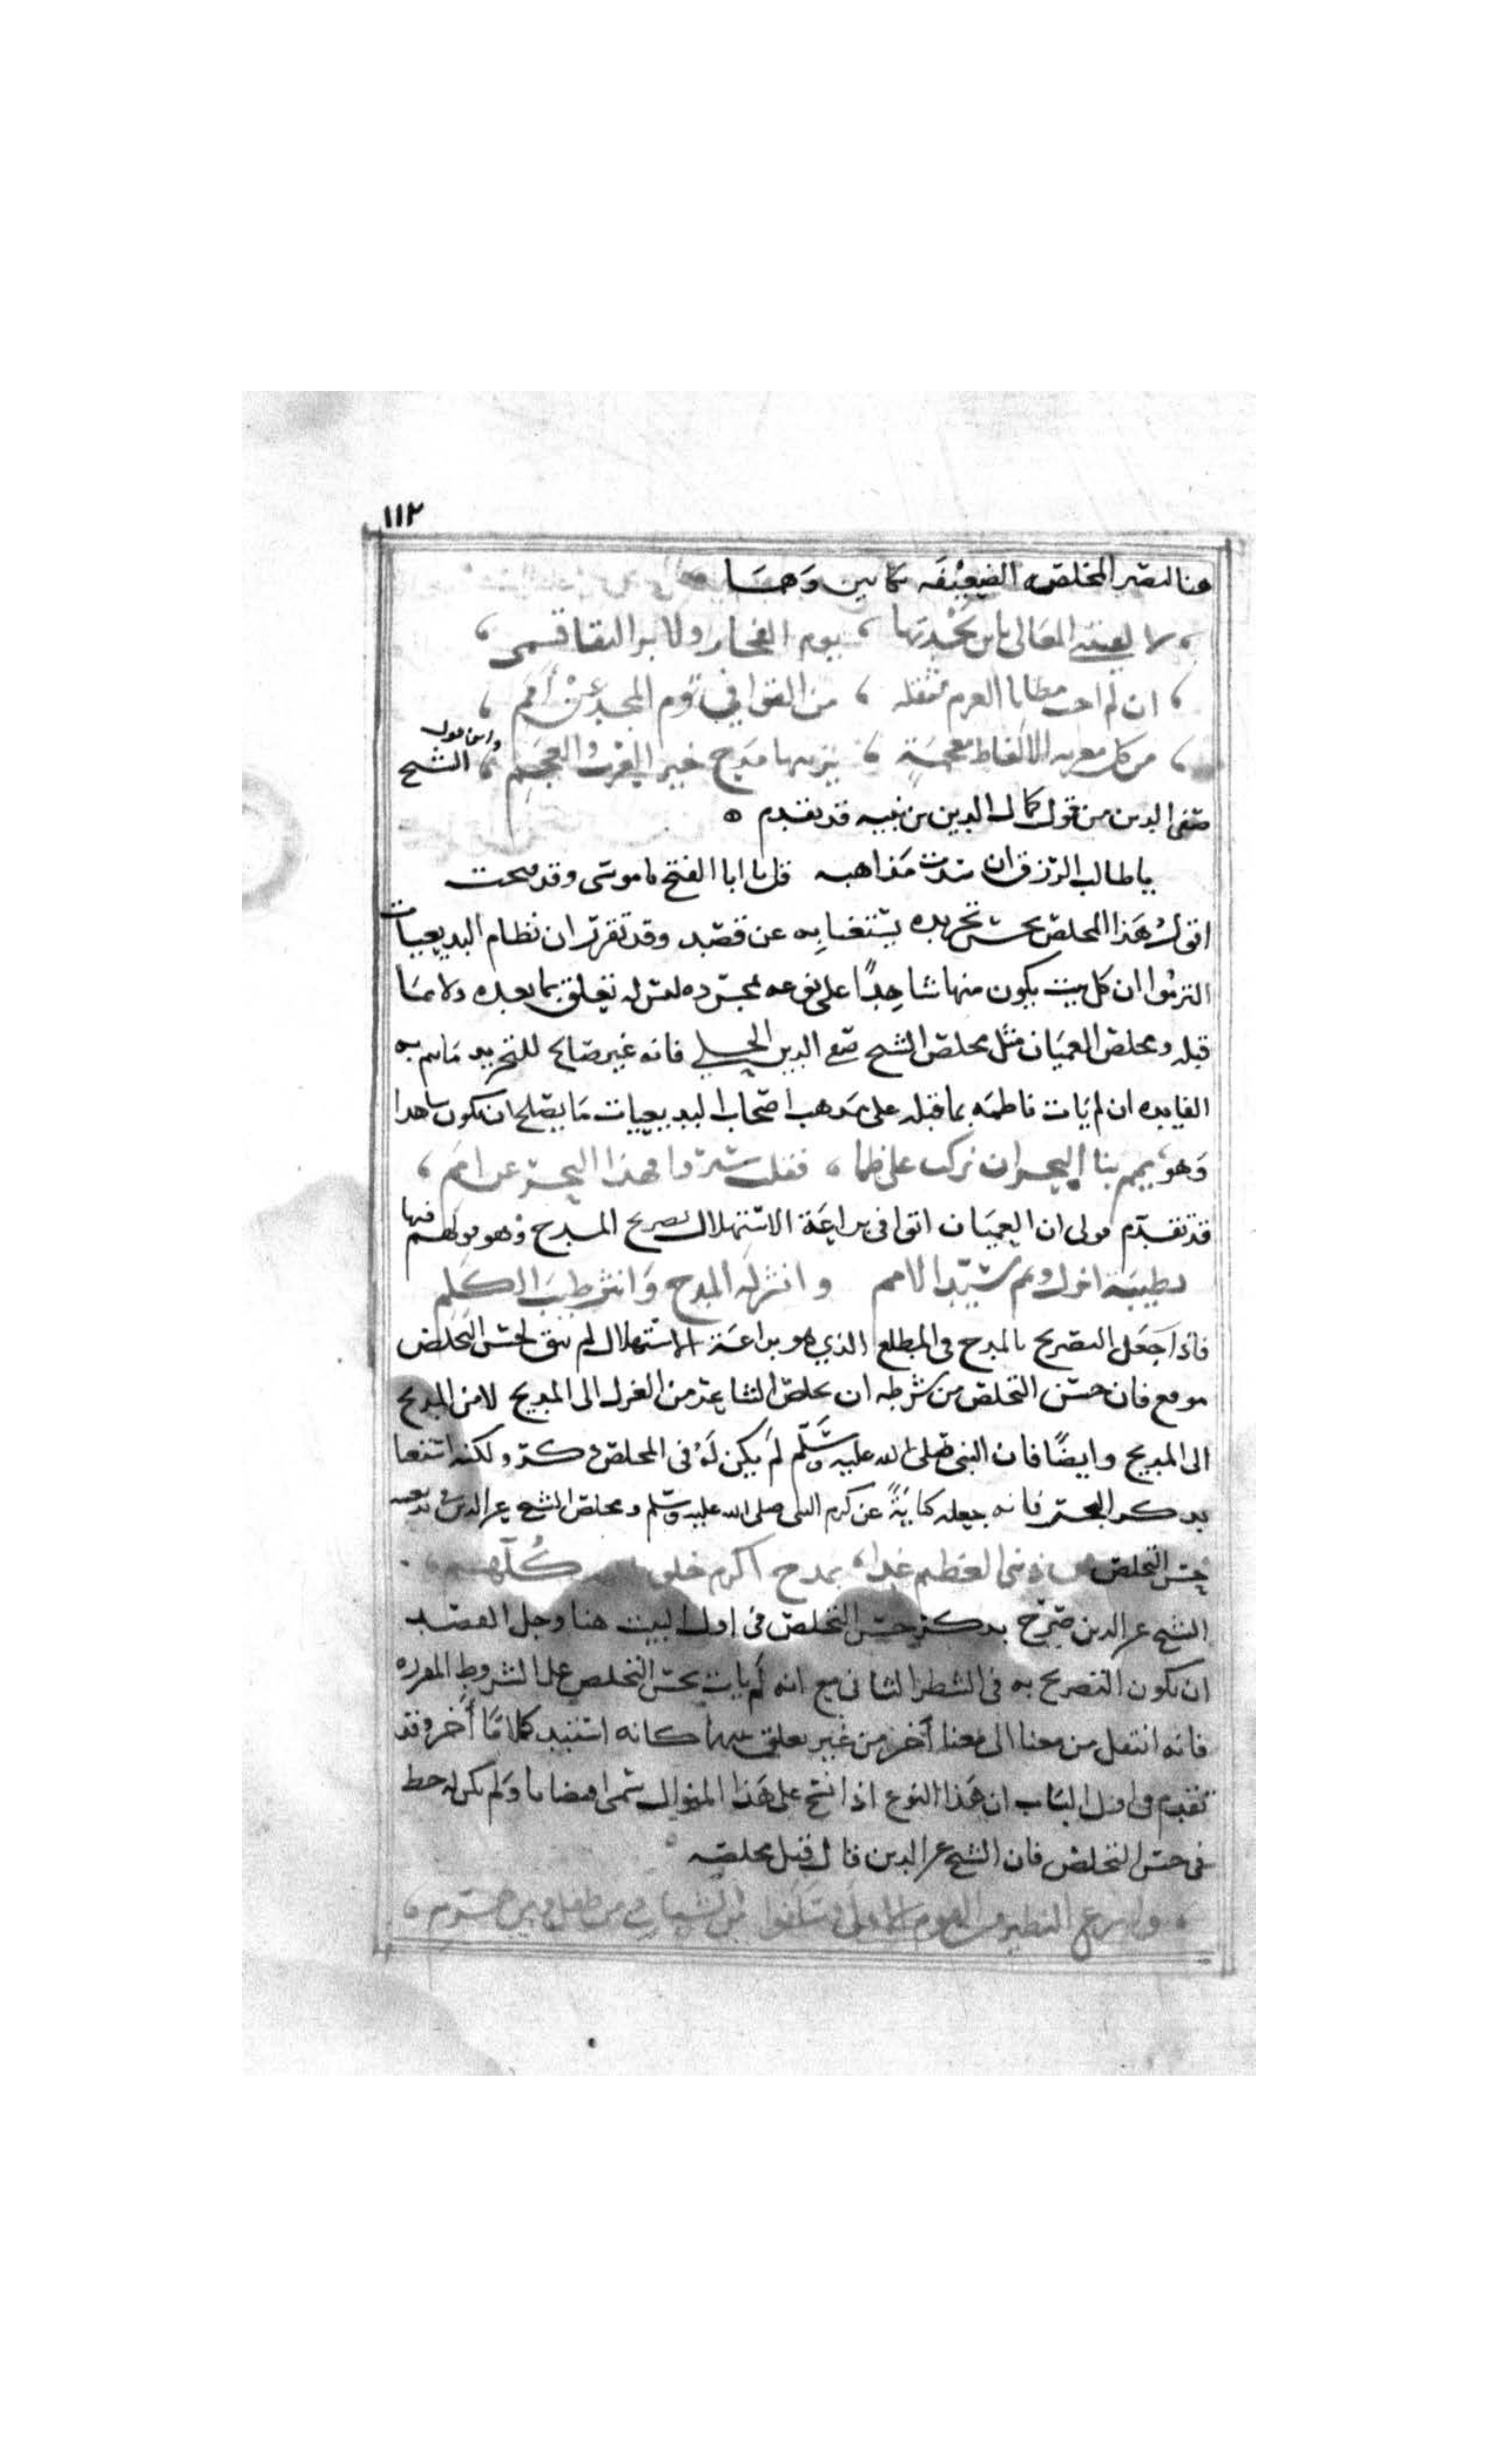 ١١٢
هنا لتصير المخلص الضعيفه كما بين وهما
لا لقبتني المعالي بابن بجدتها ، يوم الفخار ولا بر التقا قسمى ،
ان لم احث مطايا العزم مثقله ، من القوافي تؤم المجد عن أمم ،
من كل معربه الالفاظ معجمة ، يزينها مدح خير العرب والعجم ، واين قول الشيح
صفى الدين من قول كمال الدين بن نبيه قد تقدم ه
يا طالب الرزق ان سدت مذاهبه قل يا ابا الفتح يا موسى وقد فتحت
اقول هذا المخلص بحسن تجريده يستغنا به عن قصيد وقد تقرر ان نظام البديعيات
التزموا ان كل بيت يكون منها شاهدًا على نوعه بمجرده ليس له تعلق بما بعده ولا بما
قبله ومخلص العميان مثل مخلص الشيح صفي الدين الحلي فانه غير صالح للتجريد ما تم به
الفايده ان لم يات ناظمه بما قبله على مذهب اصحاب البديعيات ما يصلح ان يكون شاهدا
وهو يمم بنا البحر ان الركب على ظما ، فقلت سيروا فهذا البحر عن امم ،
قد تقدم قولى ان العميان اتوا في براعة الاستهلال بصريح المدح وهو قولهم فيها
بطيبة انزل ويمم سيّد الامم وانثر له المدح وانشر طيب الكلم
فاذا جعل التصريح بالمدح في المطلع الذي هو براعة الاستهلال لم يبق لحسن التخلص
موقع فان حسن التخلص من شرطه ان يخلص الشاعر من الغزل الى المديح لا من المديح
الى المديح وايضًا فان النبي صلى الله عليه وسلم لم يكن له في المخلص ذكر ولكنه استغنا
بذكر البحر فانه جعله كنايةً عن كرم النبي صلى الله عليه وسلم ومخلص الشيح عز الدين في بديعيته
حسن التخلص من ذنبى العظيم غدا ، بمدح اكرم خلق كلهم ،
الشيح عز الدين صرّح بذكر حسن التخلص في اول البيت هنا وجل القصد
ان يكون التصريح به في الشطر الثاني مع انه لم يات بحسن التخلص على الشروط المقرره
فانه انتقل من معنا الى معنا أخر من غير تعلق بينهما كانه استبد كلامًا أخر وقد
تقدم في اول الباب ان هذا النوع اذا نسج على هذا المنوال سمى اقتضابا ولم يكن له حظ
في حسن التخلص فان الشيح عز الدين قال قبل مخلصه
الشباب من طفل ومن هرم ،